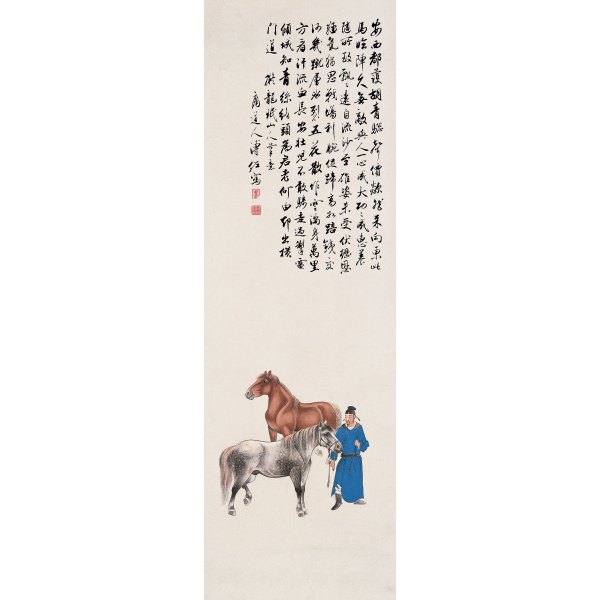 安西都護胡青驄聲價欻然來向東此
馬臨陣久無敵與人一心成大功〻成惠養
隨所致飄〻遠自流沙至雄姿未受伏櫪恩
猛氣猶思戰場利腕促蹄高如踣鐵交
河幾蹴層冰裂五花散作雲滿身萬里
方看汗流血長安壯兒不敢騎走過掣電
傾城知青絲絡頭為君老何由卻出橫
門道 龍眠山人筆意
道人溥 寫